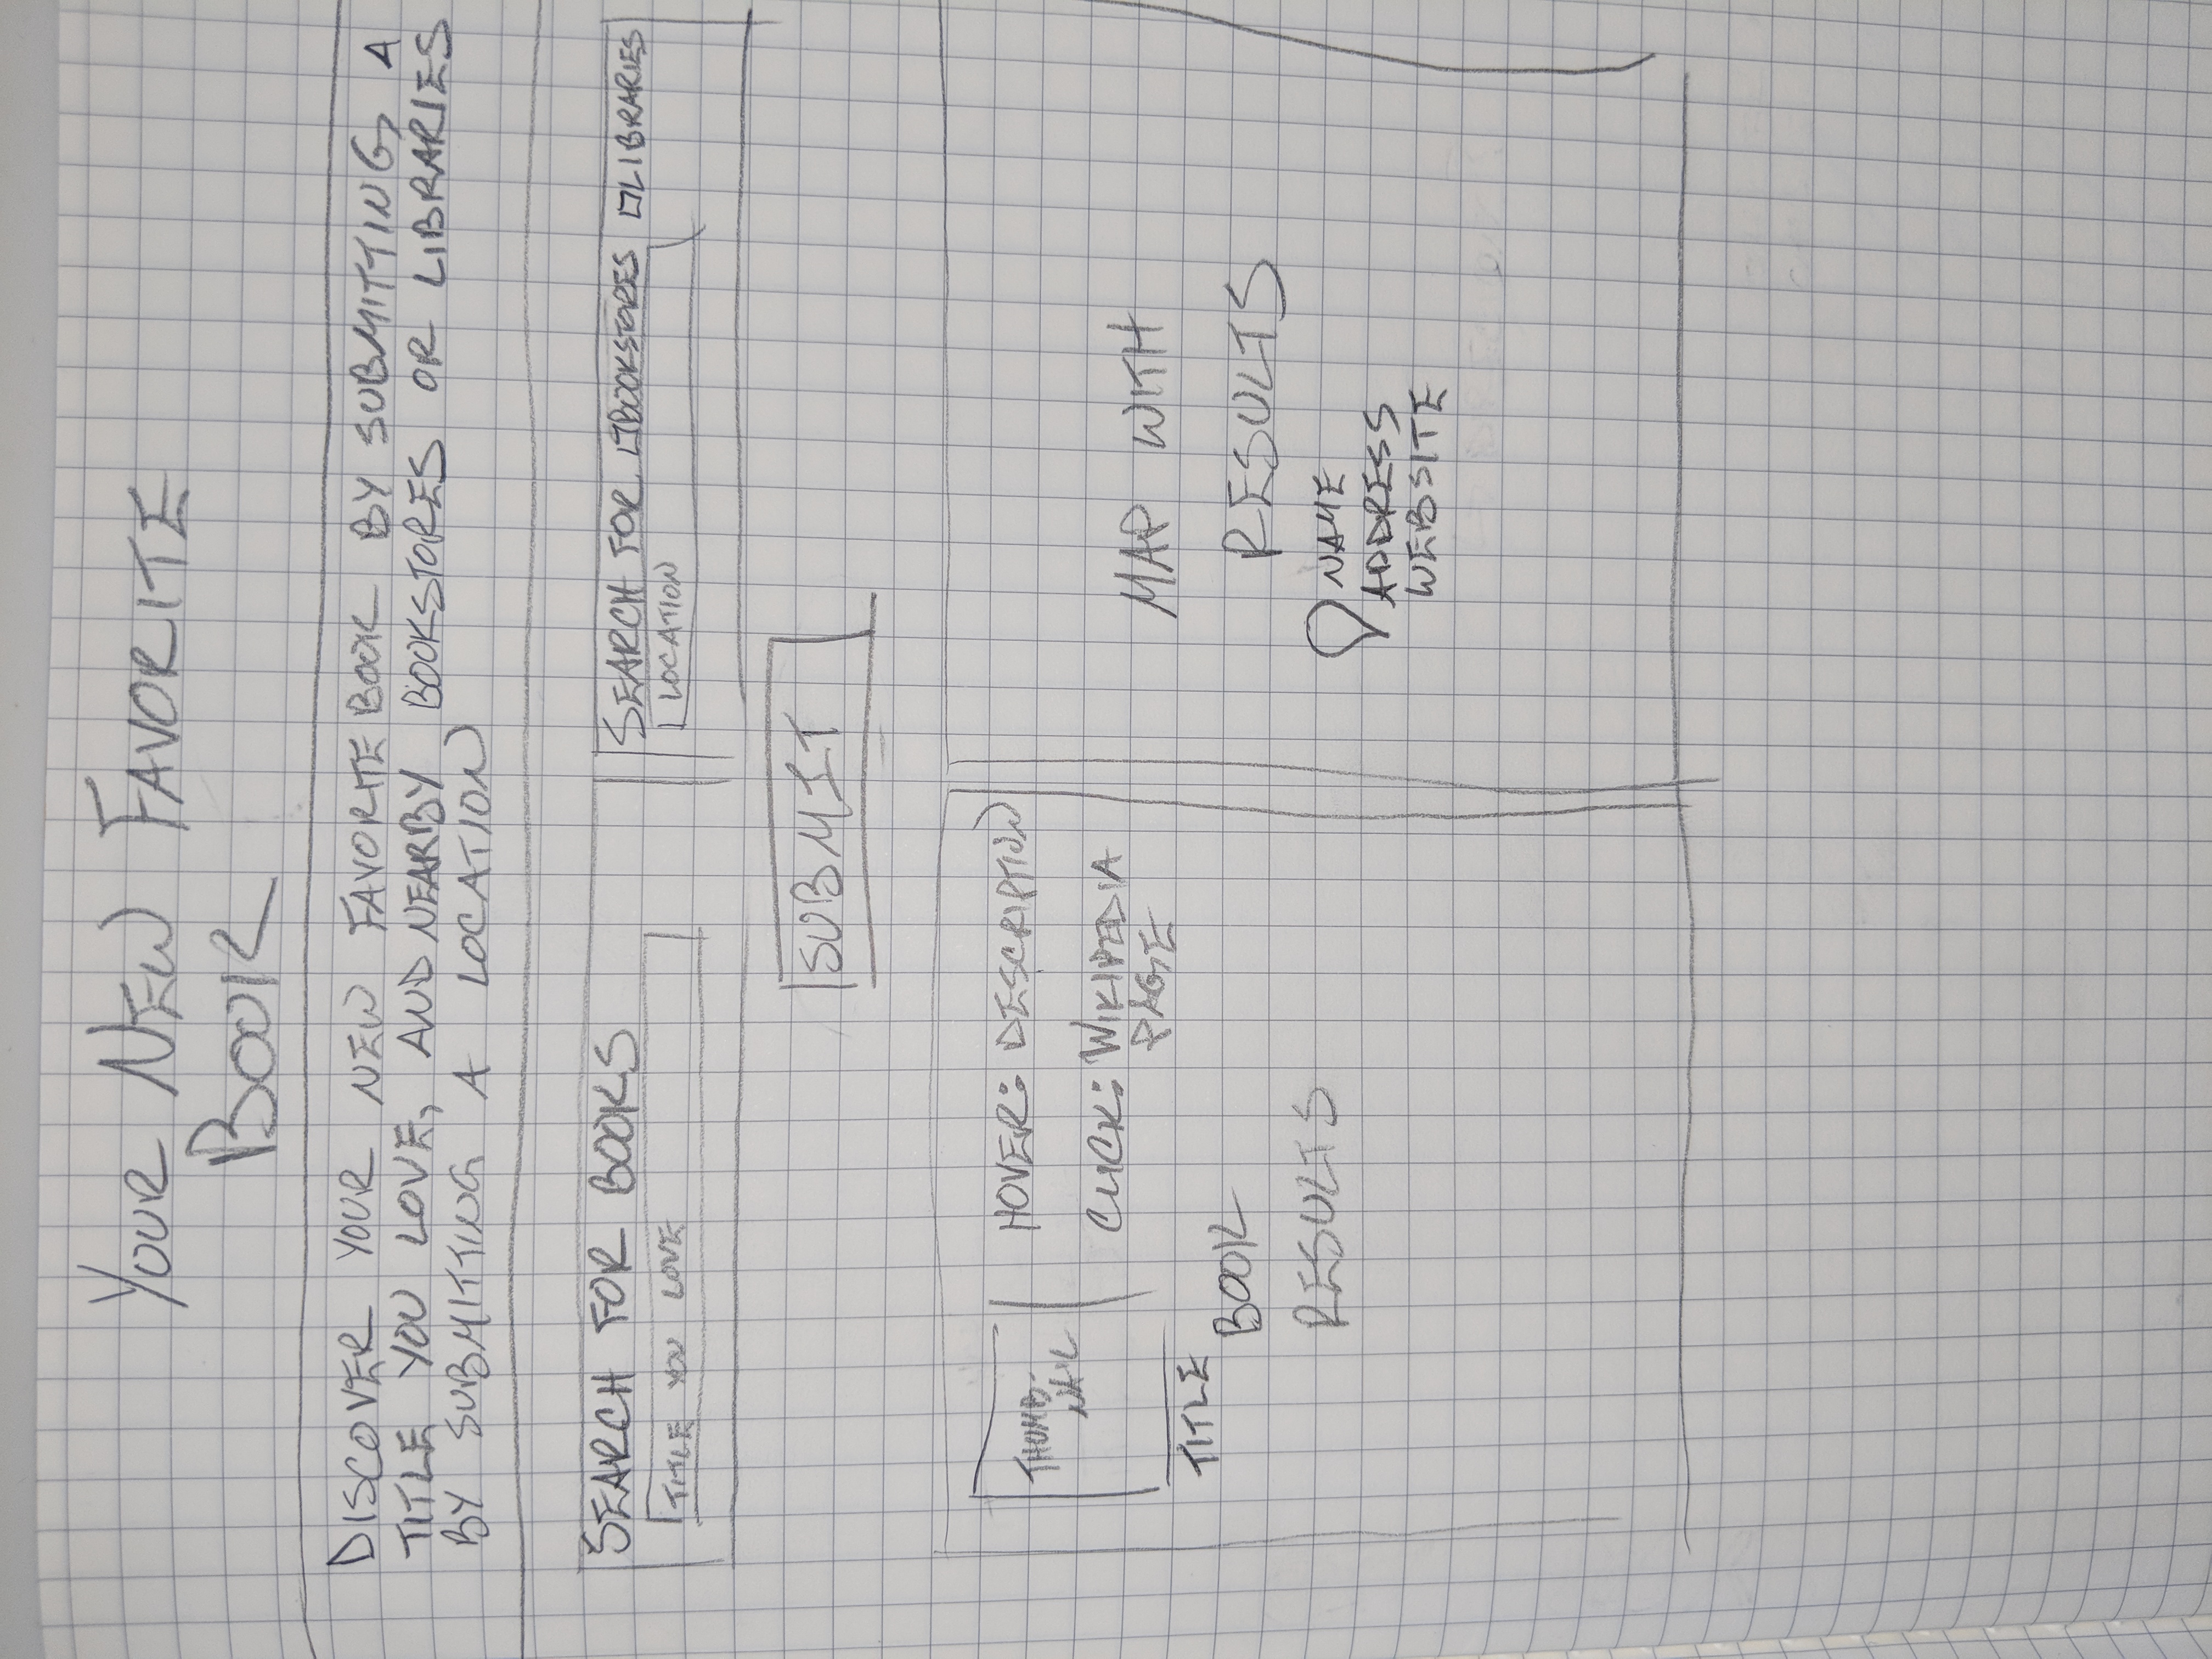 YOUR NEW FAVORITE
BOOK
DISCOVER YOUR NEW FAVORITE BOOK BY SUBMITTING A
TITLE YOU LOVE, AND NEARBY BOOKSTORES OR LIBRARIES
BY SUBMITTING A LOCATION
SEARCH FOR BOOKS
TITLE YOU LOVE
SEARCH FOR BOOKSTORES LIBRARIES
LOCATION
SUBMIT
THUMB-
NAIL
TITLE
HOVER: DESCRIPTION
CLICK: WIKIPEDIA
PAGE
BOOK
RESULTS
MAP WITH
RESULTS
NAME
ADDRESS
WEBSITE